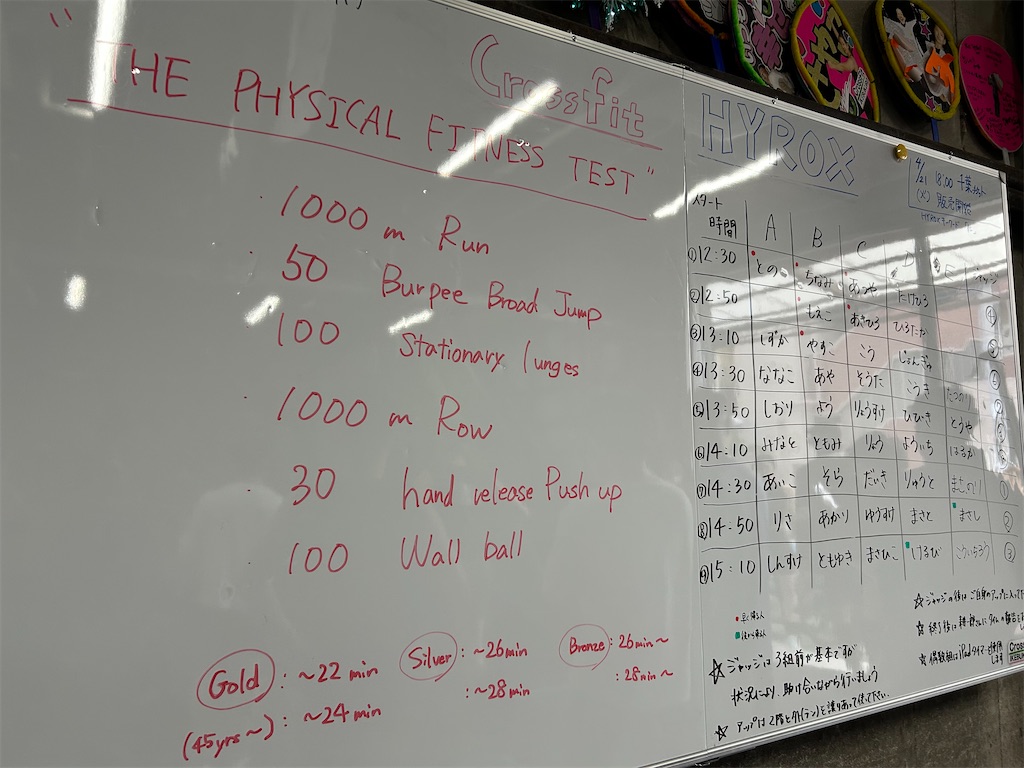 Crossfit
"THE PHYSICAL FITNESS TEST"
1000 m Run
50 Burpee Broad Jump
100 Stationary lunges
1000 m Row
30 hand release Push up
100 Wall ball
Gold : ~22 min Silver : ~26min Bronze : 26min~
(45yrs~) : ~24 min : ~28min : 28min~
HYROX
4/21 18:00 千葉
(火) 販売開始
スタート
時間 A B C D E ジャッジ
①12:30 ちなみ あつや たけひろ
②12:50 しえこ あきひろ ひろたか ④
③13:10 しずか やすこ こう
④13:30 ななこ あや そうた こうき たつのり
⑤13:50 しおり よう りょうすけ ひびき とうや
⑥14:10 みなと ともみ りょう よういち はるか
⑦14:30 あいこ そら だいき りゅうと ①
⑧14:50 りさ あかり ゆうすけ まさと まさし ②
⑨15:10 しんすけ ともゆき まさひこ けるび こういちろう ③
☆ ジャッジは3組前が基本ですが
状況により、助け合いながら行いましょう
☆ アップは2階と外(ラン)を譲りあって使って下さい。